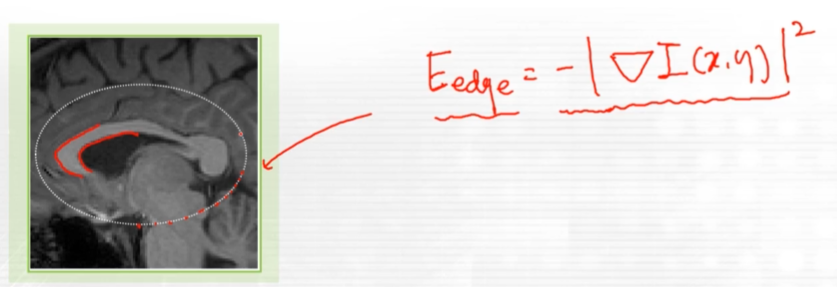 E_edge = -|∇I(x,y)|²